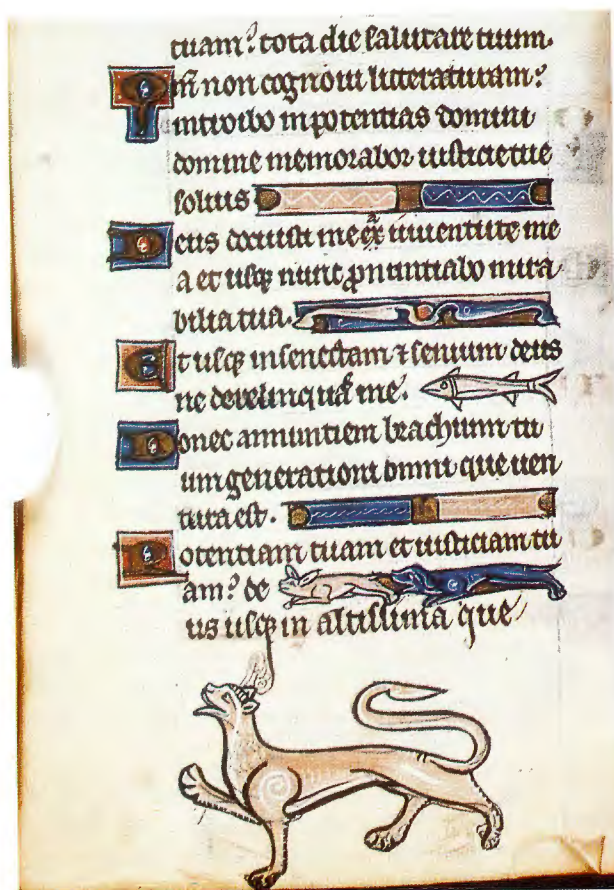 tuam? tota die salutare tuum.
Qm̄ non cognoui litteraturam?
introibo in potentias domini
domine memorabor iusticie tue
solius
Deus docuisti me ex iuuentute me
a et usq; nunc pronuntiabo mira
bilia tua.
Et usq; in senectam ⁊ senium deus
ne derelinquas me.
Donec annuntiem brachium tu
um generationi omni que uen
tura est.
Potentiam tuam et iusticiam tu
am? de
us usq; in altissima que